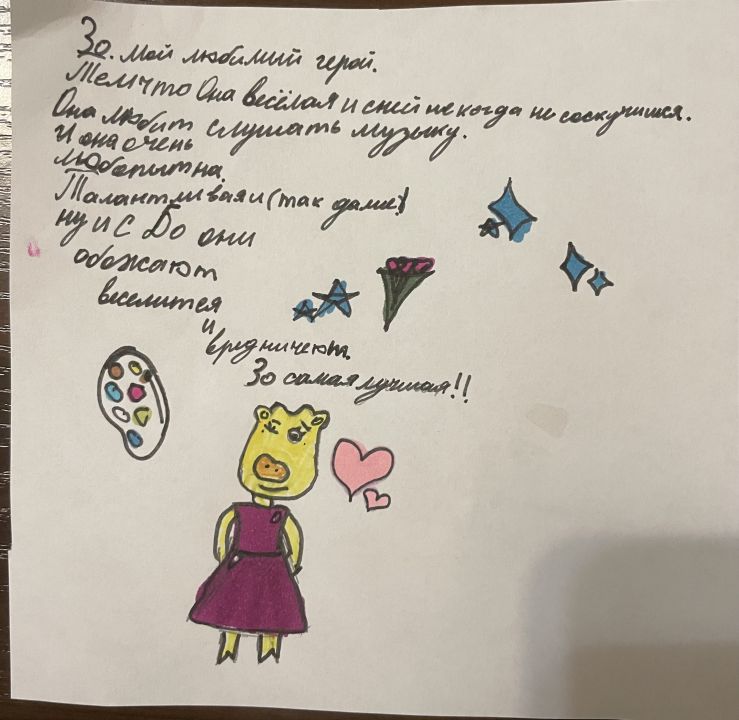 Зо. Мой любимый герой.
Тем что Она весёлая и с ней не когда не соскучишся.
Она любит слушать музыку.
И она очень
любопытна.
Талантливая и (так далие)
ну и с До они
обожают
веселится
и
вредничеют.
Зо самая лучшая!!